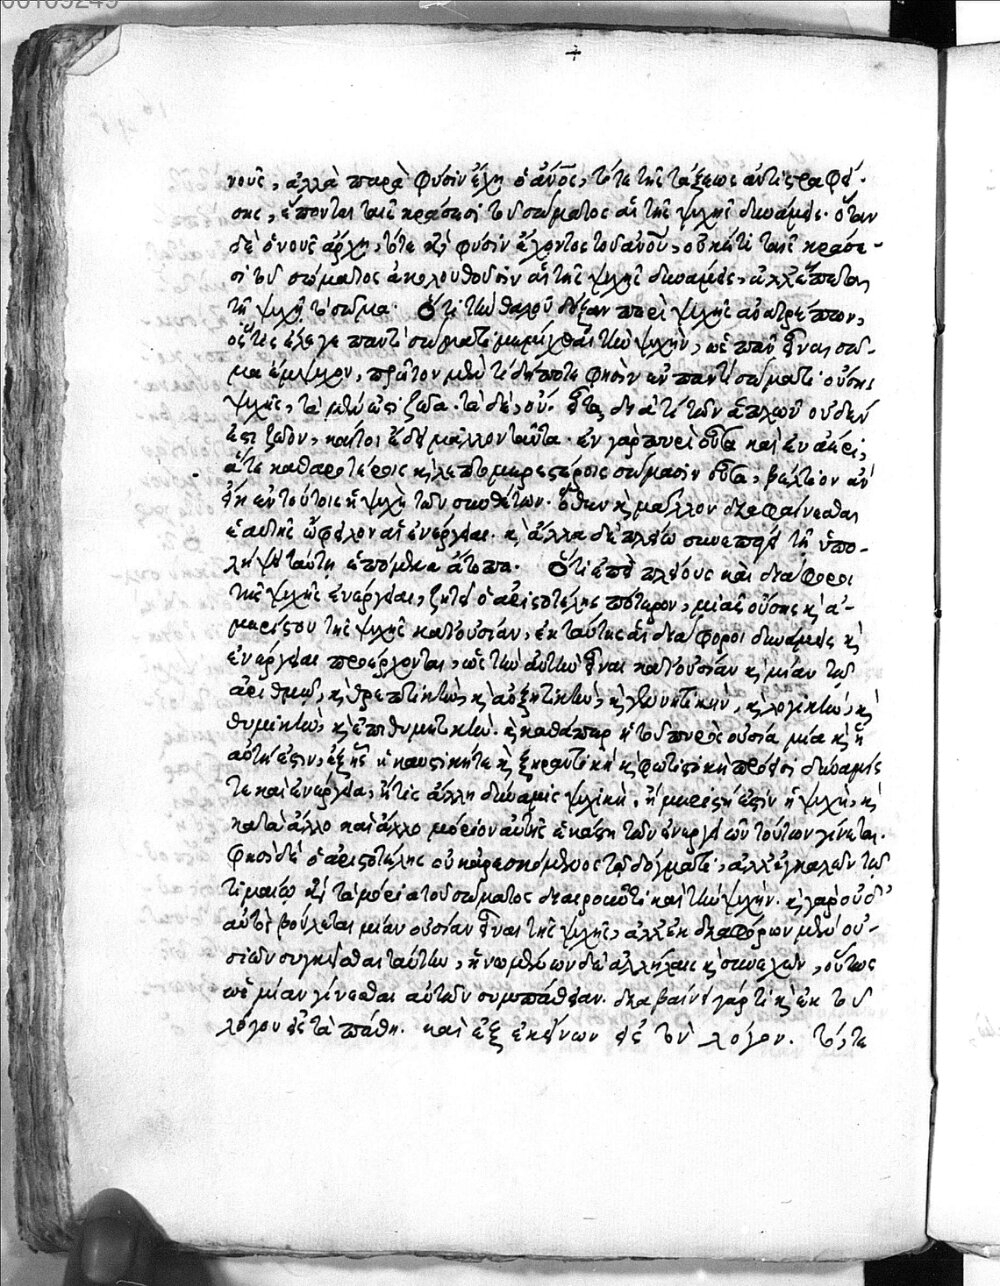 νους, ἀλλὰ παρὰ φύσιν ἔχη ὁ ἄνος, τότε τῆς τάξεως ἀντιστραφεί-
σης, ἕπονται ταῖς κράσεσι τοῦ σώματος αἱ τῆς ψυχῆς δυνάμεις. ὅταν
δὲ ὁ νοῦς ἄρχη, τότε κατὰ φύσιν ἔχοντος τοῦ ἀνου, οὐκέτι ταῖς κράσε-
σι τοῦ σώματος ἀκολουθοῦσιν αἱ τῆς ψυχῆς δυνάμεις, ἀλλ' ἕπεται
τῆ ψυχῆ τὸ σῶμα. Ὅτι τὴν θαλοῦ δόξαν περὶ ψυχῆς ἀνατρέπων,
ὅστις ἔλεγε παντὶ σώματι μεμίχθαι τὴν ψυχὴν, ὡς πᾶν εἶναι σῶ-
μα ἔμψυχον, πρῶτον μὲν τί δήποτε φησὶν ἐν παντὶ σώματι οὔσης
ψυχῆς, τὰ μέν ἐστι ζῶα. τὰ δὲ, οὔ. εἶτα, διὰ τί τῶν ἁπλῶν οὐδέν
ἐστι ζῶον, καίτοι ἔδει μᾶλλον ταῦτα. ἐν γὰρ πυρὶ οὖσα καὶ ἐν ἀέρι,
ἅτε καθαρωτέροις καὶ λεπτομερεστέροις σώμασιν οὖσα, βελτίων ἂν
εἴη ἐν τούτοις ἡ ψυχὴ τῶν συνθέτων. ὅθεν καὶ μᾶλλον διαφαίνεσθαι
αὐτῆς ὤφειλον αἱ ἐνέργειαι. καὶ ἄλλα δὲ πλείω συνεπάγει τῆ ὑπο-
λήψει ταύτη ἑπόμενα ἄτοπα. Ὅτι ἐπεὶ πλείους καὶ διάφοροι
τῆς ψυχῆς ἐνέργειαι, ζητεῖ ὁ ἀριστοτέλης πότερον, μιᾶς οὔσης καὶ ἀ-
μερίστου τῆς ψυχῆς κατ' οὐσίαν, ἐκ ταύτης αἱ διάφοροι δυνάμεις καὶ
ἐνέργειαι προέρχονται, ὡς τὴν αὐτὴν εἶναι κατ' οὐσίαν καὶ μίαν τῶ
ἀριθμῶ, καὶ θρεπτικὴν, καὶ αὐξητικὴν, καὶ γεννητικὴν, καὶ λογικὴν, καὶ
θυμικὴν, καὶ ἐπιθυμητικὴν. καὶ καθάπερ ἡ τοῦ πυρὸς οὐσία μία καὶ ἡ
αὐτή ἐστιν, ἐξ ἧς ἡ καυστική τε καὶ ξηραντικὴ καὶ φωτιστικὴ πρόεισι δύναμίς
τε καὶ ἐνέργεια, ἤ τις ἄλλη δύναμις ψυχικὴ. ἢ μεριστή ἐστιν ἡ ψυχὴ, καὶ
κατὰ ἄλλο καὶ ἄλλο μόριον αὐτῆς ἑκάστη τῶν ἐνεργειῶν τούτων γίνεται.
Φησὶ δὲ ὁ ἀριστοτέλης οὐκ ἀρεσκόμενος τῶ δόγματι, ἀλλ' ἐγκαλεῖν τῶ
τιμαίω κατὰ τὰ μόρια τοῦ σώματος διαιροῦντι καὶ τὴν ψυχὴν. καὶ γὰρ οὐδ'
αὐτὸς βούλεται μίαν οὐσίαν εἶναι τῆς ψυχῆς, ἀλλ' ἐκ διαφόρων μὲν οὐ-
σιῶν συγκεῖσθαι ταύτην, ἡνωμένων δὲ ἀλλήλαις καὶ συνεχῶν, οὕτως
ὡς μίαν γίνεσθαι αὐτῶν συμπάθειαν. διαβαίνει γάρ τι καὶ ἐκ τοῦ
λόγου εἰς τὰ πάθη. καὶ ἐξ ἐκείνων εἰς τὸν λόγον. τό, τε